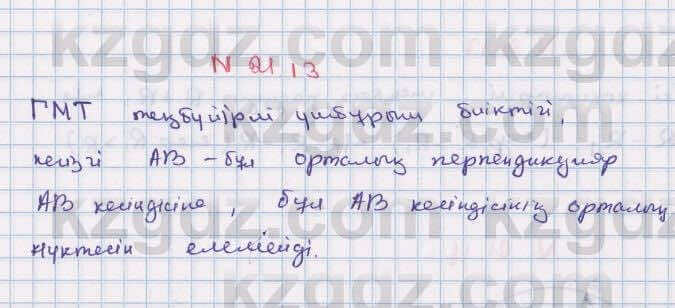 kzgdz.com kzgdz.com
N 21.13
ГМТ теңбүйірлі үшбұрыш биіктігі,
негізгі АВ – бұл орталық перпендикуляр
АВ кесіндісіне, бұл АВ кесіндісінің орталық
нүктесін елемейді.